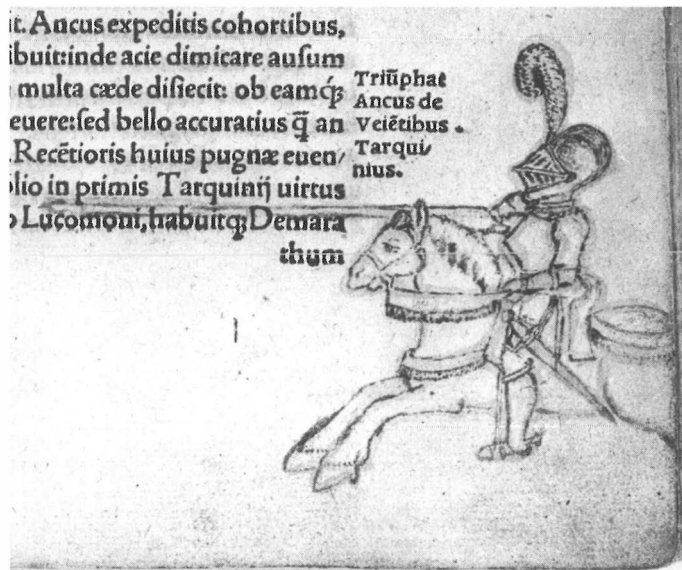 it. Ancus expeditis cohortibus,
ibuit:inde acie dimicare ausum
multa cæde disiecit: ob eamq́ꝫ
euere:sed bello accuratius q̃ an
. Recẽtioris huius pugnæ euen/
lio in primis Tarquinij uirtus
o Lucomoni, habuitqꝫ Demara
thum
Triũphat
Ancus de
Veiẽtibus.
Tarqui/
nius.